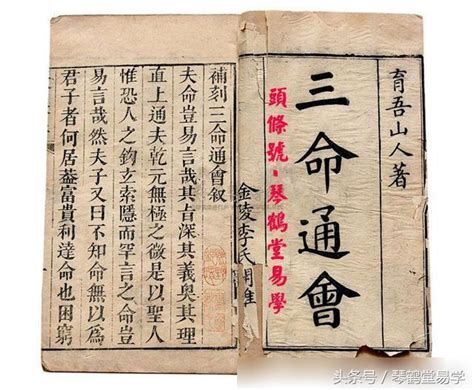 育吾山人著
三命通會
頭條號·琴鶴堂易學
金陵李氏
補刻三命通會叙
夫命豈易言哉其旨深其義奥其理
直上通夫乾元無極之微是以聖人
惟恐人之鉤玄索隱而罕言之命豈
易言哉然夫子又曰不知命無以爲
君子者何居葢富貴利達命也困窮
头条号/琴鹤堂易学